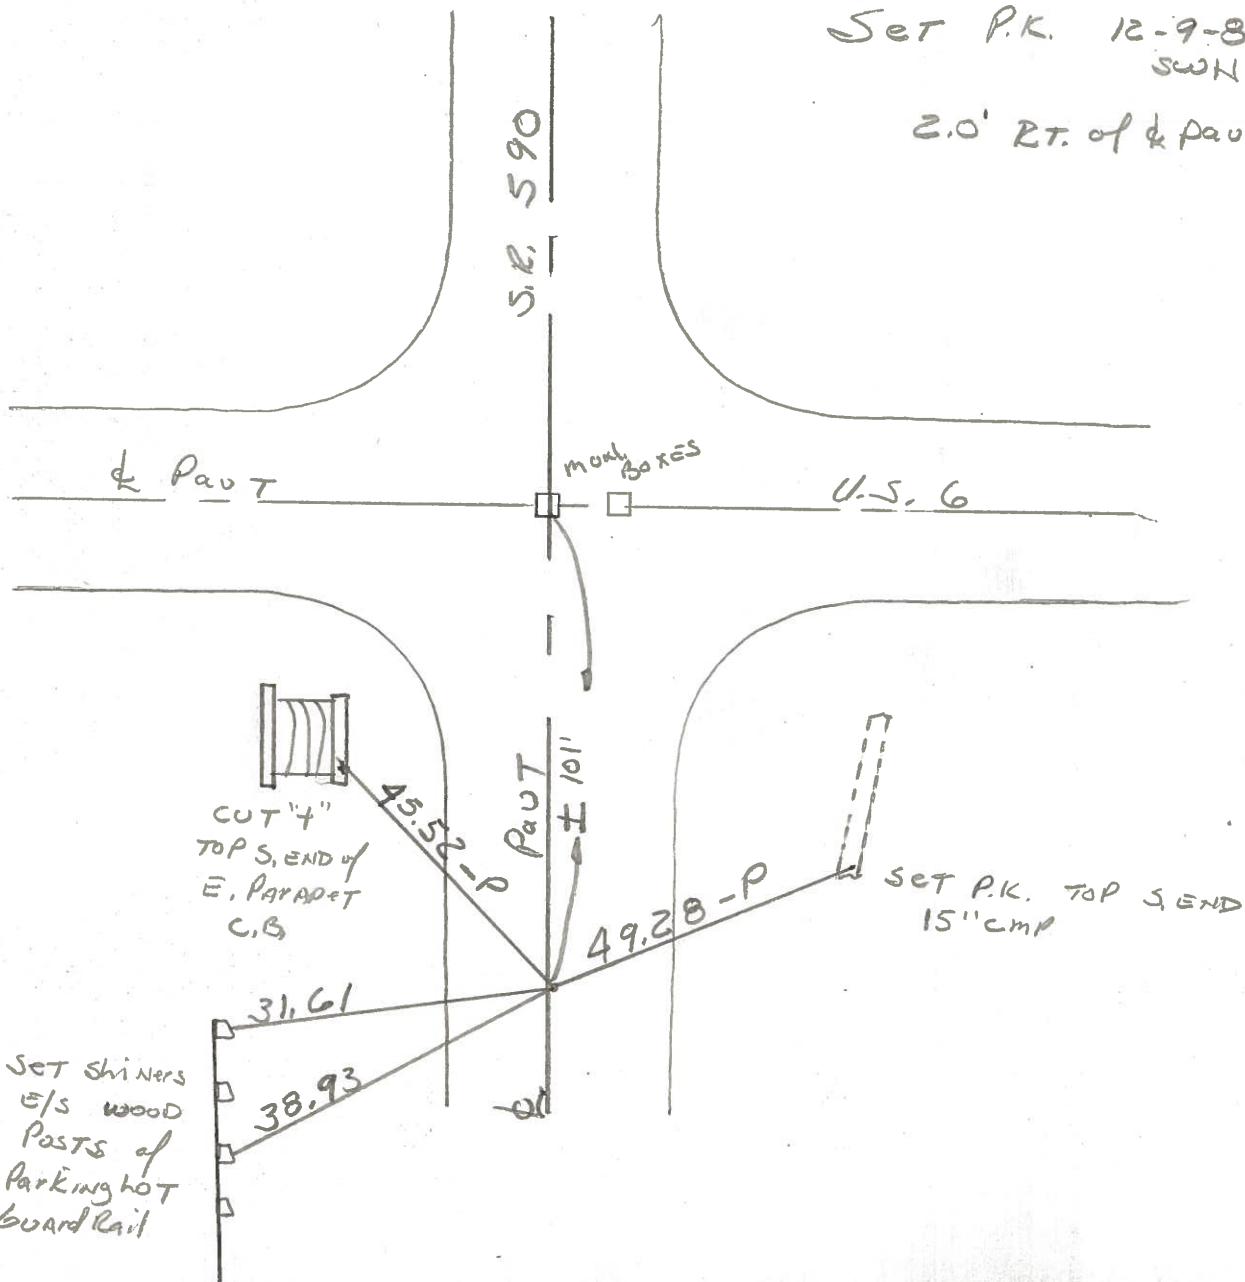 Set P.K. 12-9-8
SWN
2.0' RT. of ℄ Pav
S.R. 590
℄ PavT
monu. BOXES
U.S. 6
PavT
± 101'
CUT "+"
TOP S. END of
E. PARAPET
C.B.
45.52-P
49.28-P
SET P.K. TOP S. END
15" CMP
31.61
38.93
SET Shiners
E/S WOOD
POSTS of
Parking LOT
Guard Rail
℄